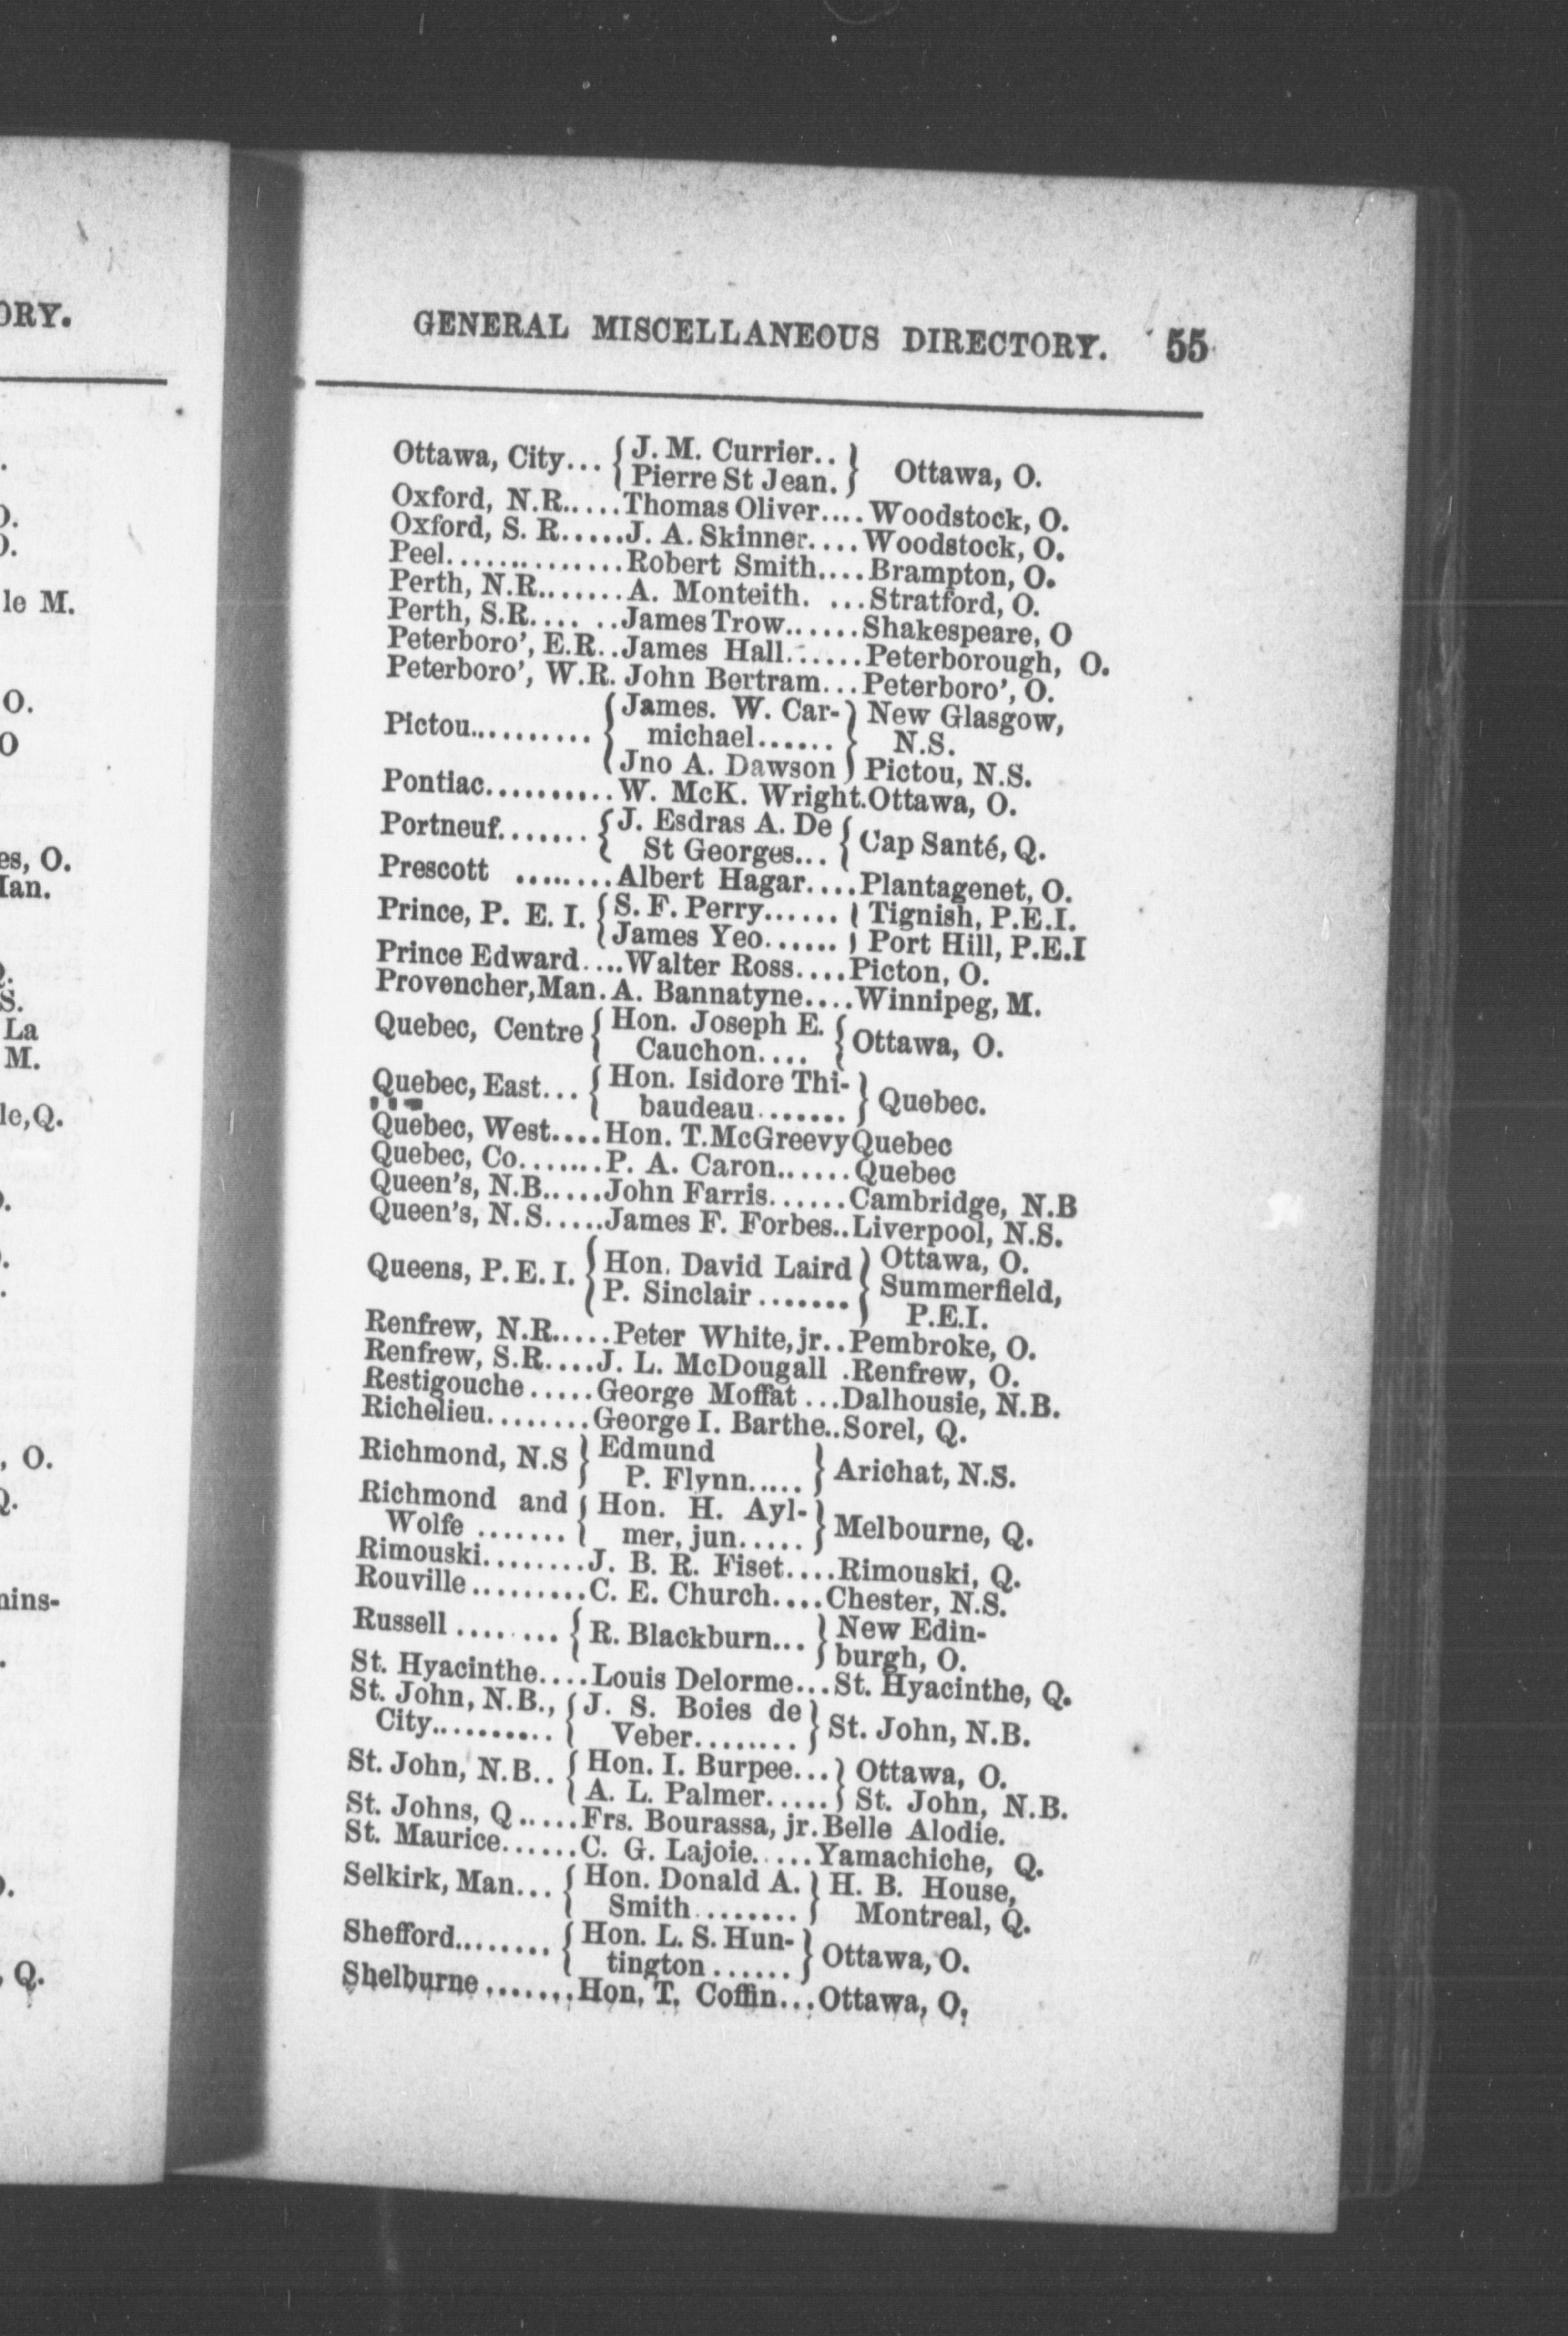 GENERAL MISCELLANEOUS DIRECTORY. 55
Ottawa, City... { J. M. Currier.. } Ottawa, O.
{ Pierre St Jean. }
Oxford, N.R.....Thomas Oliver....Woodstock, O.
Oxford, S. R.....J. A. Skinner....Woodstock, O.
Peel..............Robert Smith....Brampton, O.
Perth, N.R.......A. Monteith. ...Stratford, O.
Perth, S.R.... ..James Trow......Shakespeare, O
Peterboro', E.R..James Hall.......Peterborough, O.
Peterboro', W.R. John Bertram...Peterboro', O.
{ James. W. Car- } New Glasgow,
Pictou.......... { michael...... } N.S.
{ Jno A. Dawson } Pictou, N.S.
Pontiac..........W. McK. Wright.Ottawa, O.
Portneuf....... { J. Esdras A. De { Cap Santé, Q.
{ St Georges... {
Prescott ........Albert Hagar....Plantagenet, O.
Prince, P. E. I. { S. F. Perry...... { Tignish, P.E.I.
{ James Yeo...... } Port Hill, P.E.I
Prince Edward....Walter Ross....Picton, O.
Provencher, Man. A. Bannatyne....Winnipeg, M.
Quebec, Centre { Hon. Joseph E. { Ottawa, O.
{ Cauchon.... {
Quebec, East... { Hon. Isidore Thi- } Quebec.
{ baudeau....... }
Quebec, West....Hon. T. McGreevy Quebec
Quebec, Co.......P. A. Caron......Quebec
Queen's, N.B.....John Farris......Cambridge, N.B
Queen's, N.S.....James F. Forbes..Liverpool, N.S.
Queens, P. E. I. { Hon. David Laird } Ottawa, O.
{ P. Sinclair ....... } Summerfield,
P.E.I.
Renfrew, N.R.....Peter White, jr..Pembroke, O.
Renfrew, S.R....J. L. McDougall .Renfrew, O.
Restigouche.....George Moffat...Dalhousie, N.B.
Richelieu........George I. Barthe..Sorel, Q.
Richmond, N.S } Edmund } Arichat, N.S.
} P. Flynn..... }
Richmond and { Hon. H. Ayl- } Melbourne, Q.
Wolfe ....... { mer, jun..... }
Rimouski........J. B. R. Fiset....Rimouski, Q.
Rouville.........C. E. Church....Chester, N.S.
Russell ........ { R. Blackburn... } New Edin-
burgh, O.
St. Hyacinthe....Louis Delorme...St. Hyacinthe, Q.
St. John, N.B., { J. S. Boies de } St. John, N.B.
City.......... { Veber........ }
St. John, N.B.. { Hon. I. Burpee... } Ottawa, O.
{ A. L. Palmer..... } St. John, N.B.
St. Johns, Q.....Frs. Bourassa, jr. Belle Alodie.
St. Maurice......C. G. Lajoie.....Yamachiche, Q.
Selkirk, Man... { Hon. Donald A. } H. B. House,
{ Smith........ } Montreal, Q.
Shefford........ { Hon. L. S. Hun- } Ottawa, O.
{ tington...... }
Shelburne.......Hon. T. Coffin...Ottawa, O.